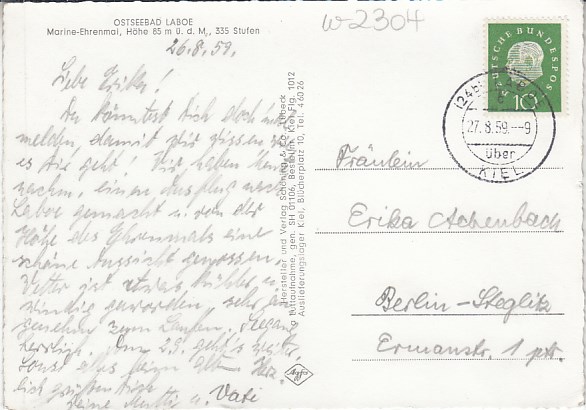 OSTSEEBAD LABOE
Marine-Ehrenmal, Höhe 85 m ü. d. M., 335 Stufen
w 2304
26.8.59.
Liebe Erika!
Du könntest Dich doch mal
melden, damit wir wissen wie
es Dir geht! Wir haben heute
nachm. einen Ausflug nach
Laboe gemacht u. von der
Höhe des Ehrenmals eine
schöne Aussicht genossen.
Wetter ist etwas kühler u.
windig geworden, sehr an-
genehm zum Laufen. Seegang
herrlich. Am 29. geht's weiter,
sonst alles beim Alten. Herz-
lich grüßen Dich
Deine Mutti u. Vati
Hersteller und Verlag: Schöning & Co., Lübeck
Luftaufnahme, gen. SH 01106, Bestellnr. Kiel Flg. 1012
Auslieferungslager Kiel, Blücherplatz 10, Tel. 46026
Agfa
DEUTSCHE BUNDESPOST
10
27.8.59.--9
über
KIEL
Fräulein
Erika Achenbach
Berlin-Steglitz
Ermanstr. 1 ptr.